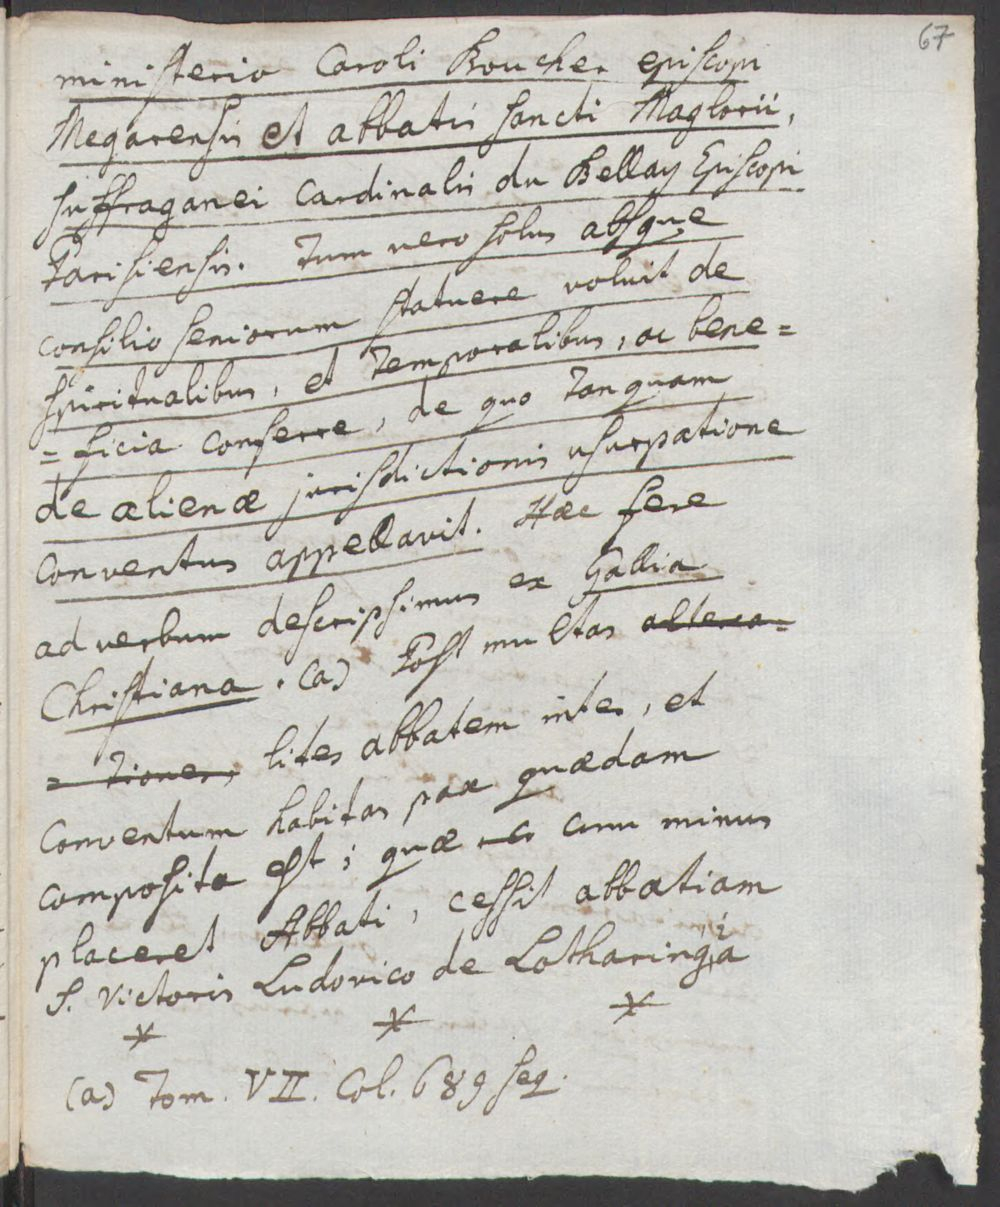 67
ministerio Caroli Boucher episcopi
Megarensis et abbatis sancti Maglorii,
suffraganei Cardinalis du Bellay Episcopi
Parisiensis. Tum vero solus absque
consilio seniorum statuere voluit de
spiritualibus, et temporalibus, ac bene=
=ficia conferre, de quo tanquam
de alienæ jurisdictionis usurpatione
conventus appellavit. Hæc fere
ad verbum descripsimus ex Gallia
Christiana. (a) Post multas alterca=
=tiones, lites abbatem inter, et
conventum habitas pax quædam
composita est; quæ cum minus
placeret Abbati, cessit abbatiam
S. Victoris Ludovico de Lotharingiá
* * *
(a) Tom. VII. Col. 689 seq.